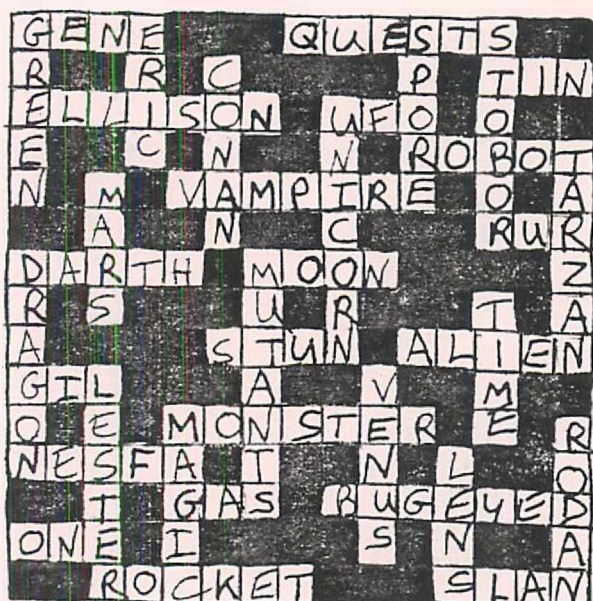 GENE QUESTS
R R C P TIN
ELLISON UFO O
E C N N ROBOT
N M VAMPIRE O A
A N C RUR
DARTH MOON Z
R S U R T A
A STUN ALIEN
GIL A V M
O E MONSTER E R
NESFA T N L O
T GAS BUGEYED
ONE I S N A
ROCKET SLAN